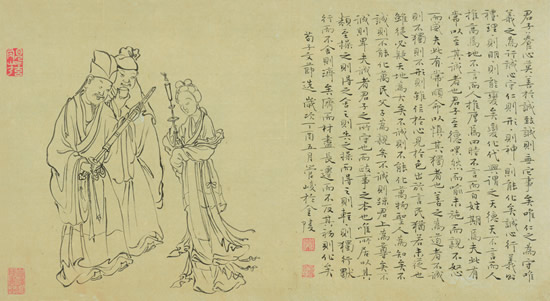 君子養心莫善於誠致誠則無它事矣唯仁之為守唯
義之為行誠心守仁則形形則神神則能化矣誠心行義則
理理則明明則能變矣變化代興謂之天德天不言而人
推高焉地不言而人推厚焉四時不言而百姓期焉夫此有
常以至其誠者也君子至德嘿然而喻未施而親不怒
而威夫此有常順命以慎其獨者也善之為道者不誠
則不獨不獨則不形不形則雖作於心見於色出於言民猶若未從也
雖從必疑天地為大矣不誠則不能化萬物聖人為知矣不
誠則不能化萬民父子為親矣不誠則疏君上為尊矣不
誠則卑夫誠者君子之所守也而政事之本也唯所居以其
類至操之則得之舍之則失之操而得之則輕輕則獨行獨
行而不舍則濟矣濟而材盡長遷而不反其初則化矣
荀子文節選 歲次丁酉五月 管峻於金陵